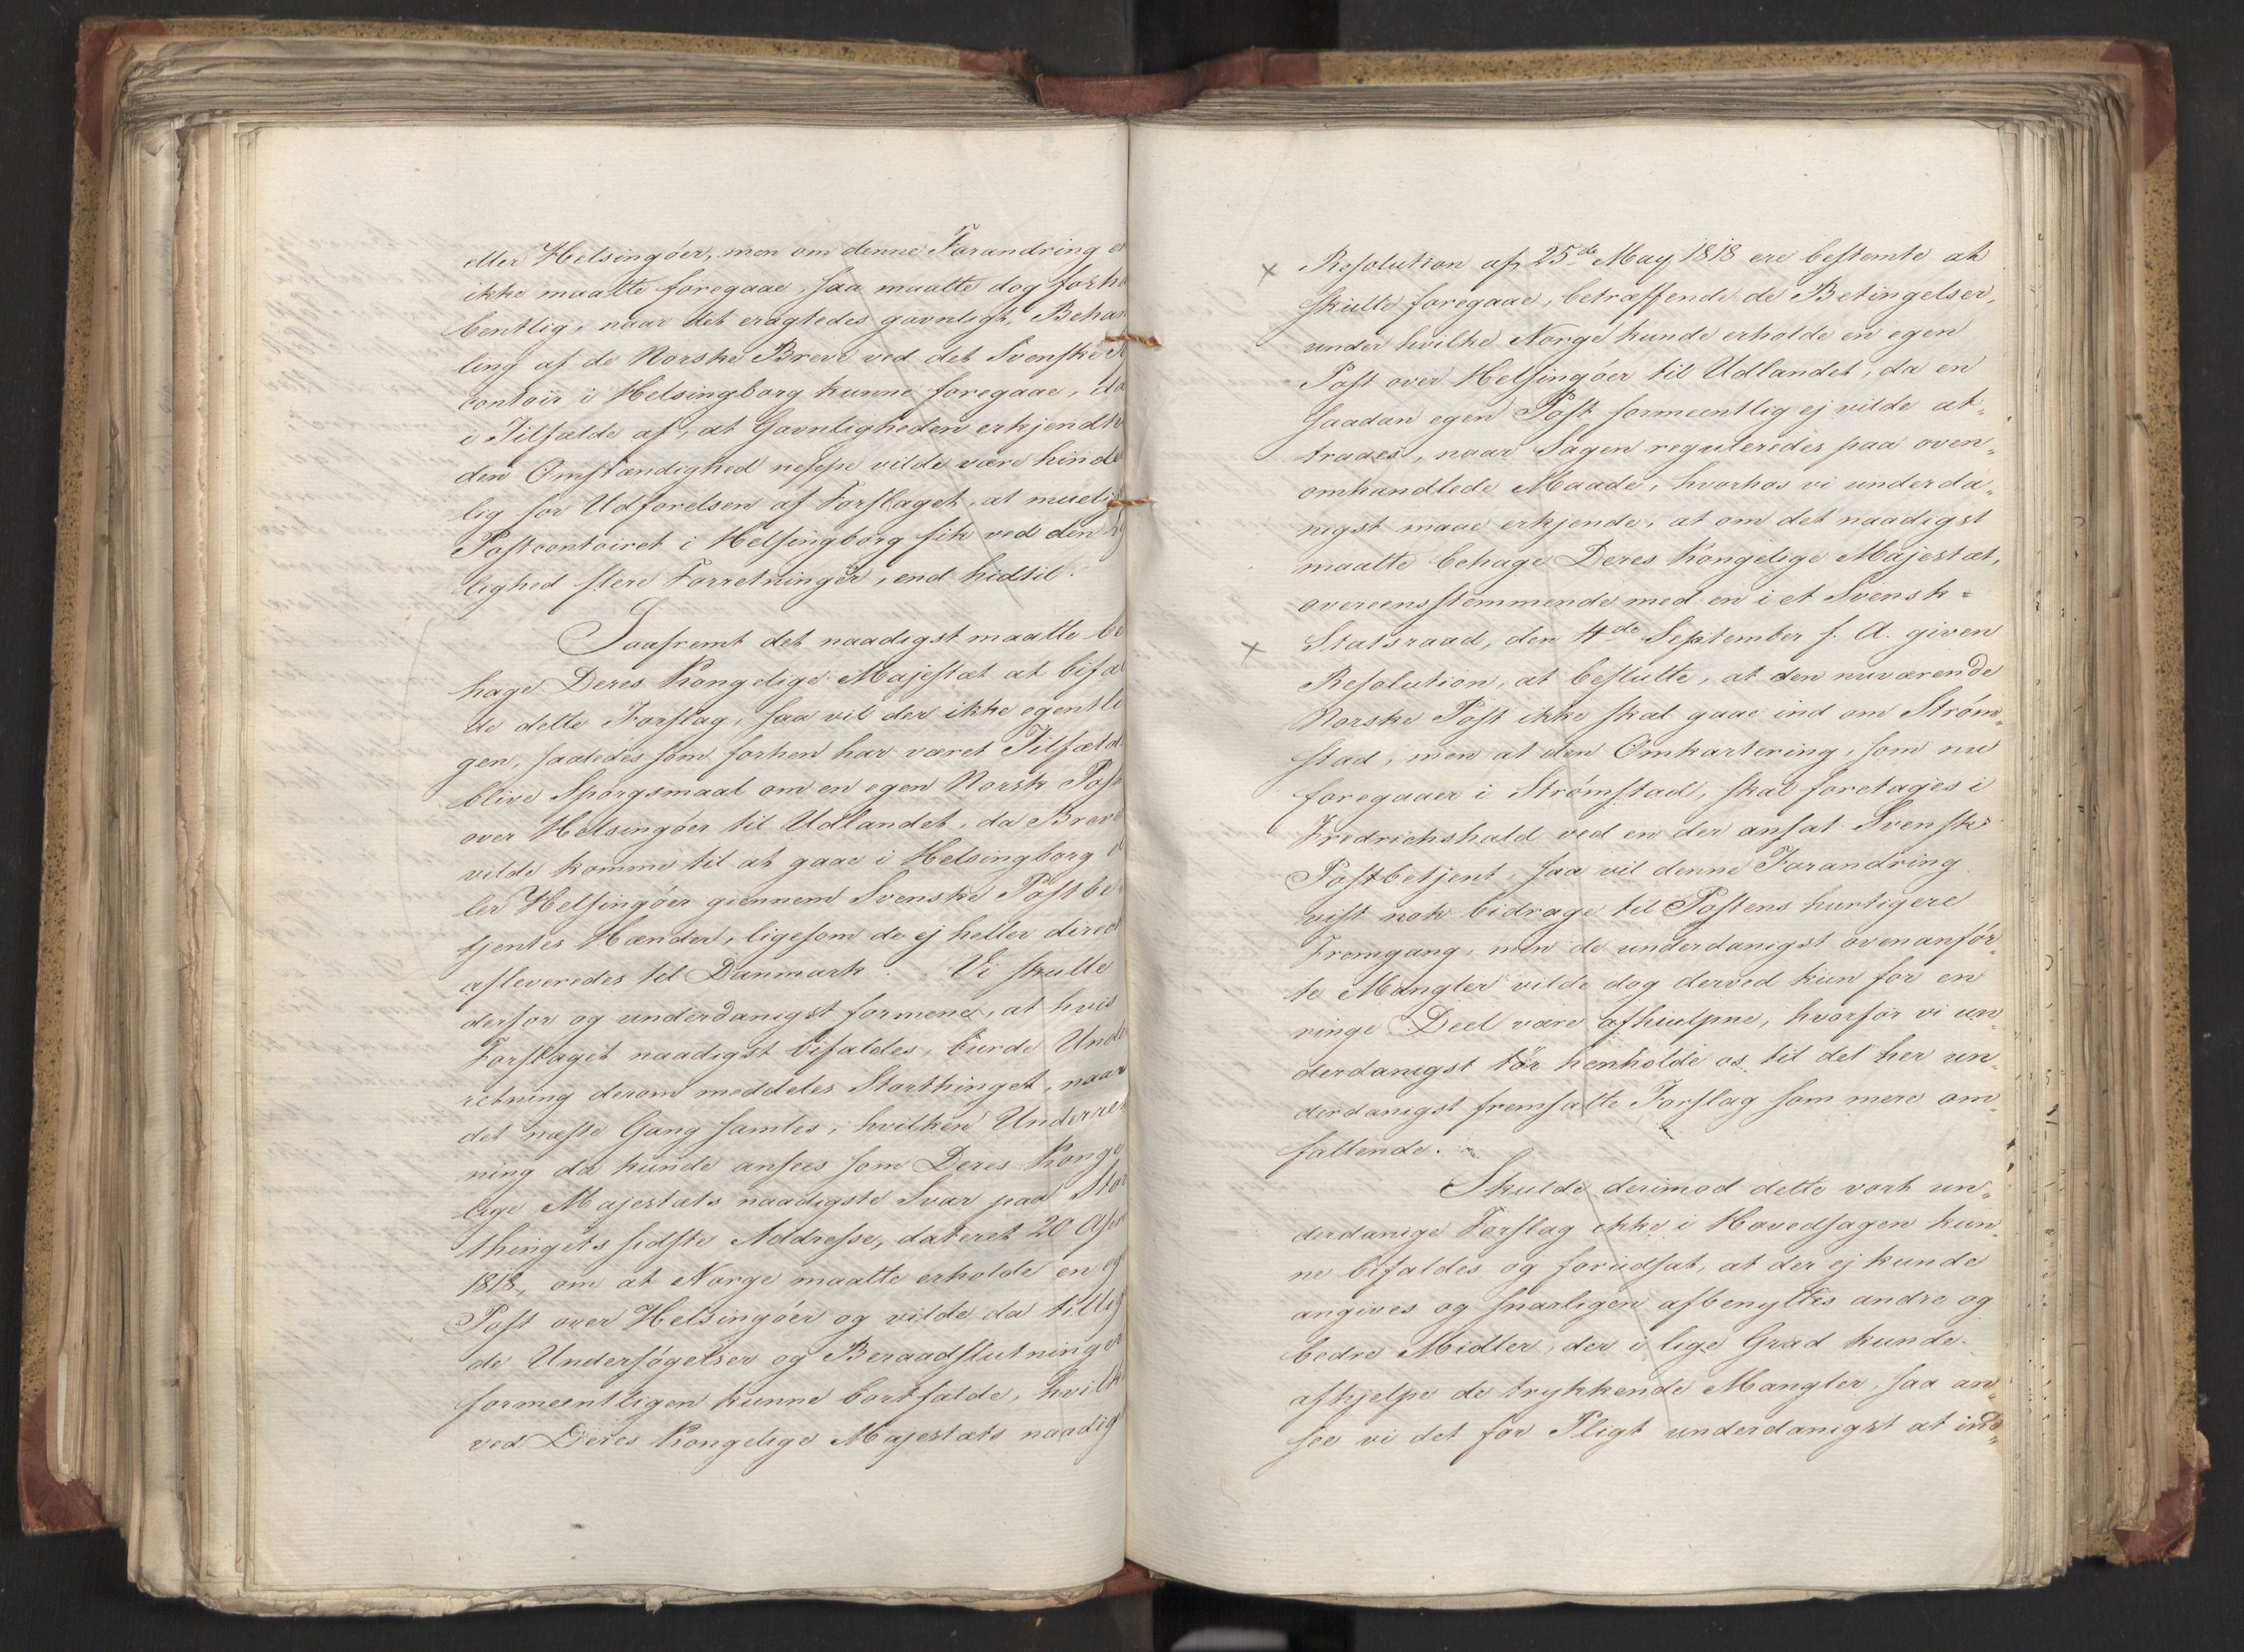 eller Helsingöer, men om denne Forandring
ikke maatte foregaae, saa maatte dog forho
bentlig, naar det eragtedes gavnligt, Behan
ling af de Norske Breve ved det Svenske
contoir i Helsingborg kunne foregaae, da
i Tilfælde af, at Gavnligheden erkjendte
den Omstændighed neppe vilde være hinde
lig for Udførelsen af Forslaget, at muelig
Postcontoiret i Helsingborg fik ved den
lighed flere Forretninger, end hidtil.
Saafremt det naadigst maatte be
hage Deres Kongelige Majestæt at bifal
de dette Forslag, saa vil der ikke egentli
gen, saaledes som forhen har været Tilfæld
blive Spørgsmaal om en egen Norsk Post
over Helsingöer til Udlandet, da Breve
vilde komme til at gaae i Helsingborg el
ler Helsingöer giennem Svenske Postbe
tjentes Hænder, ligesom de ej heller direct
afleveredes til Danmark. Vi skulle
derfor og underdanigst formene, at hvis
Forslaget naadigst bifaldes, burde Unde
retning derom meddeles Storthinget, naar
det næste Gang samles, hvilken Underret
ning da kunde ansees som Deres Konge
lige Majestæts naadigste Svar paa Stor
thingets sidste Addresse, dateret 20 Apr
1818, om at Norge maatte erholde en eg
Post over Helsingöer og vilde da tillig
de Undersögelser og Beraadslutninger
formeentligen kunne bortfalde, hvilke
ved Deres Kongelige Majestæts naadig
Resolution af 25de May 1818 ere bestemte at
skulle foregaae, betræffende de Betingelser,
under hvilke Norge kunde erholde en egen
Post over Helsingöer til Udlandet, da en
saadan egen Post formeentlig ej vilde at„
traaes, naar Sagen reguleredes paa oven„
omhandlede Maade, hvorhos vi underda„
nigst maae erkjende, at om det naadigst
maatte behage Deres Kongelige Majestæt,
overeensstemmende med en i et Svensk=
Statsraad, den 4de September f. A. given
Resolution, at beslutte, at den nuværende
Norske Post ikke skal gaae ind om Ström„
stad, men at den Omkartering, som nu
foregaaer i Strömstad, skal foretages i
Fredrichshald ved en der ansat Svensk
Postbetjent, saa vil denne Forandring
vist nok bidrage til Postens hurtigere
Fremgang, men de underdanigst ovenanför„
te Mangler vilde dog derved kun for en
ringe Deel være afhiulpne, hvorfor vi un„
derdanigst tör henholde os til det her un„
derdanigst fremsatte Forslag som mere om„
fattende.
Skulde derimod dette vort un„
derdanige Forslag ikke i Hovedsagen kun„
ne bifaldes og forudsat, at der ej kunde
angives og snarligen afbenyttes andre og
bedre Midler, der i lige Grad kunde
afhjelpe de trykkende Mangler, saa an„
see vi det for Pligt underdanigst at ind„